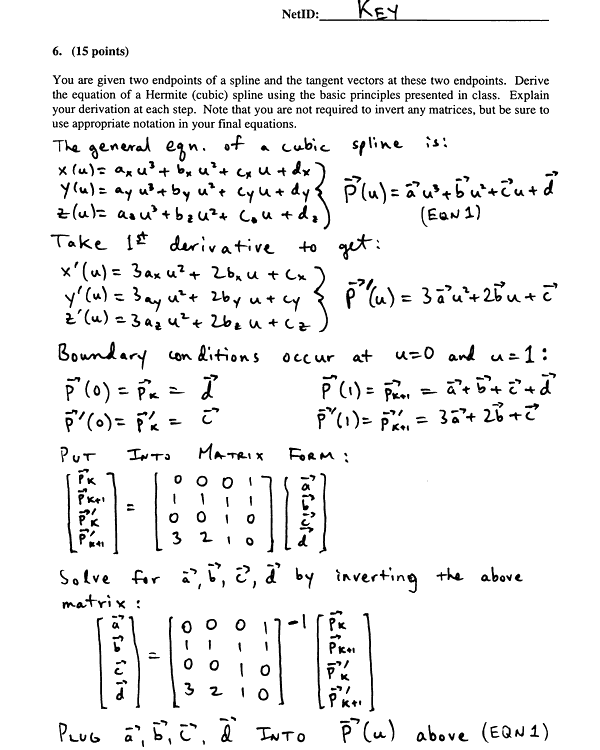 NetID: KEY
6. (15 points)
You are given two endpoints of a spline and the tangent vectors at these two endpoints. Derive
the equation of a Hermite (cubic) spline using the basic principles presented in class. Explain
your derivation at each step. Note that you are not required to invert any matrices, but be sure to
use appropriate notation in your final equations.
The general eqn. of a cubic spline is:
x(u) = aₓu³ + bₓu² + cₓu + dₓ
y(u) = a_y u³ + b_y u² + c_y u + d_y } p⃗(u) = a⃗u³ + b⃗u² + c⃗u + d⃗
z(u) = a_z u³ + b_z u² + c_z u + d_z (EQN 1)
Take 1st derivative to get:
x'(u) = 3aₓu² + 2bₓu + cₓ
y'(u) = 3a_y u² + 2b_y u + c_y } p⃗'(u) = 3a⃗u² + 2b⃗u + c⃗
z'(u) = 3a_z u² + 2b_z u + c_z
Boundary conditions occur at u=0 and u=1:
p⃗(0) = p⃗_K = d⃗ p⃗(1) = p⃗_K+1 = a⃗ + b⃗ + c⃗ + d⃗
p⃗'(0) = p⃗'_K = c⃗ p⃗'(1) = p⃗'_K+1 = 3a⃗ + 2b⃗ + c⃗
PUT INTO MATRIX FORM:
[p⃗_K] [0 0 0 1] [a⃗]
[p⃗_K+1] = [1 1 1 1] [b⃗]
[p⃗'_K] [0 0 1 0] [c⃗]
[p⃗'_K+1] [3 2 1 0] [d⃗]
Solve for a⃗, b⃗, c⃗, d⃗ by inverting the above
matrix:
[a⃗] [0 0 0 1]-1 [p⃗_K]
[b⃗] = [1 1 1 1] [p⃗_K+1]
[c⃗] [0 0 1 0] [p⃗'_K]
[d⃗] [3 2 1 0] [p⃗'_K+1]
PLUG a⃗, b⃗, c⃗, d⃗ INTO p⃗(u) above (EQN 1)